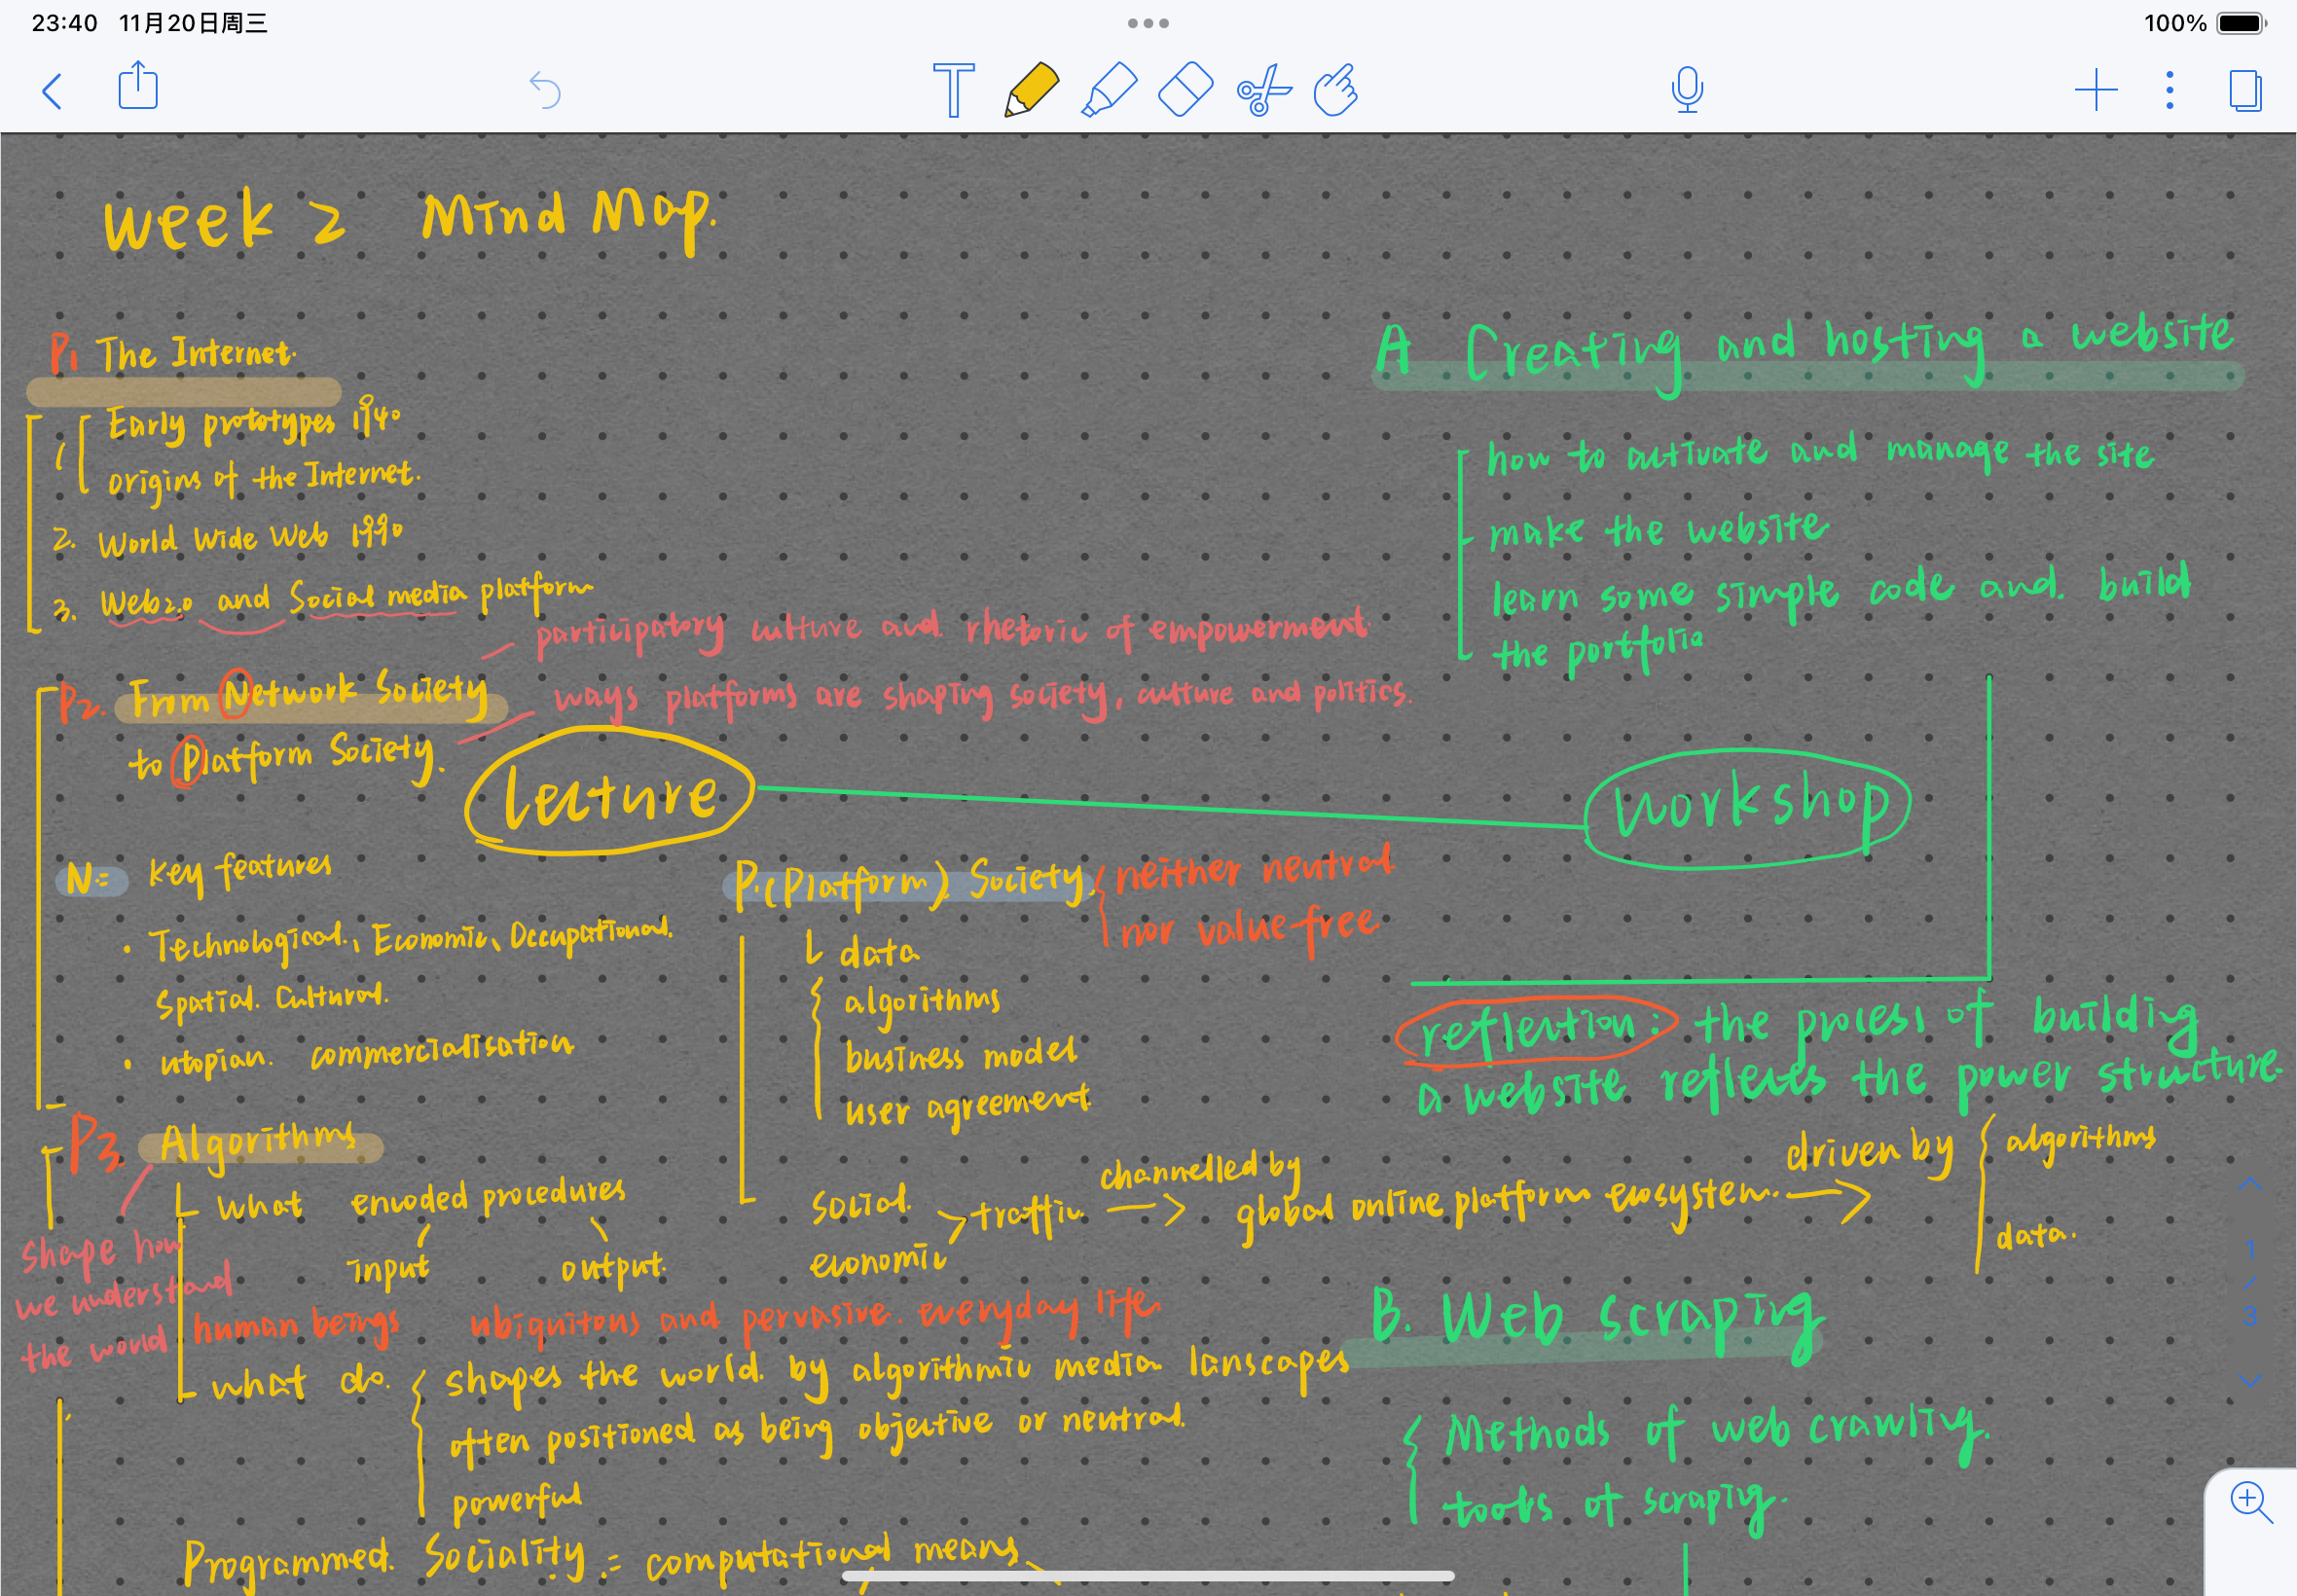 23:40 11月20日周三
100%
week 2 Mind Map.
P1 The Internet.
1
Early prototypes 1940
origins of the Internet.
2. World Wide Web 1990
3. Web2.0 and Social media platform
participatory culture and rhetoric of empowerment.
P2. From Network Society
ways platforms are shaping society, culture and politics.
to Platform Society.
Lecture
N:= key features
• Technological、Economic、Occupational.
Spatial. Cultural.
• utopian. commercialisation
P.(Platform). Society.
neither neutral
nor value-free
data
algorithms
business model
user agreement
social
economic
traffic
channelled by
global online platform ecosystem.
driven by
algorithms
data.
P3. Algorithms
shape how
we understand
the world
what encoded procedures
input output.
human beings ubiquitous and pervasive. everyday life.
what do.
shapes the world. by algorithmic media lanscapes
often positioned as being objective or neutral.
powerful
Programmed. Sociality := computational means
A Creating and hosting a website
how to activate and manage the site
make the website
learn some simple code and. build
the portfolio
workshop
reflection: the process of building
a website reflects the power structure.
B. Web scraping
Methods of web crawling.
tools of scraping.
1
/
3